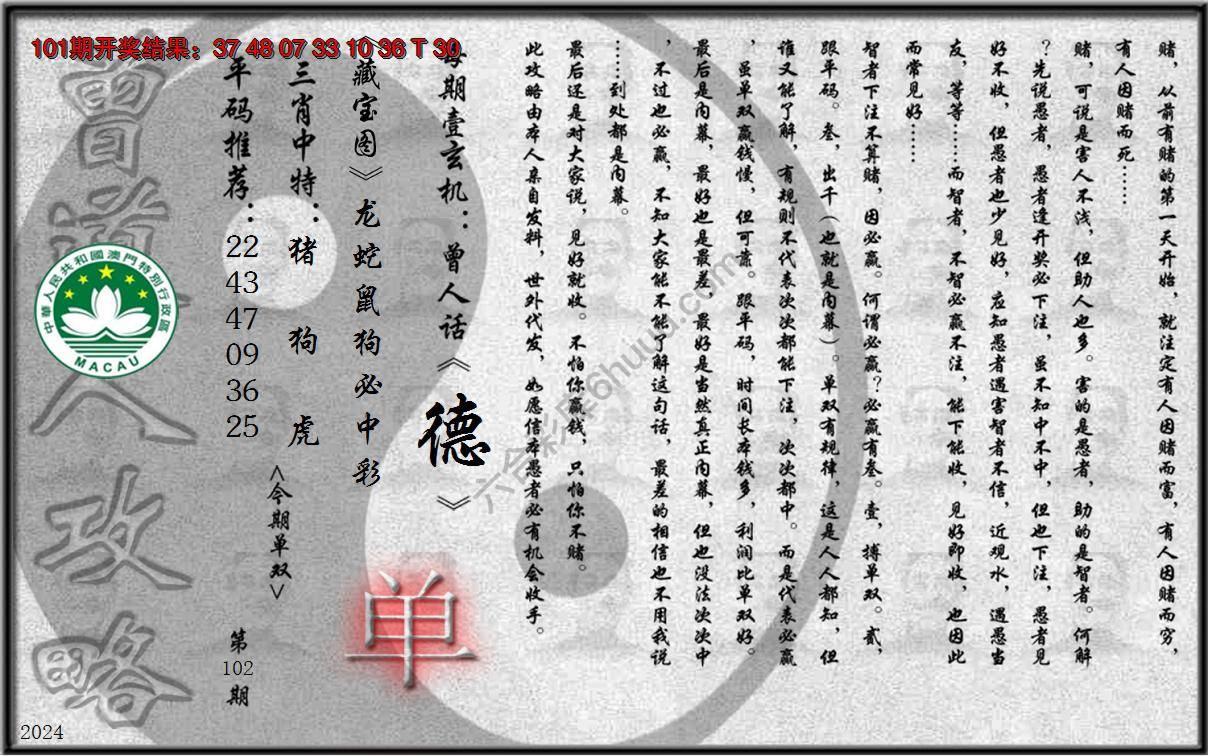 101期开奖结果：37 48 07 33 10 36 T 30
赌，从前有赌的第一天开始，就注定有人因赌而富，有人因赌而穷，
有人因赌而死……
赌，可说是害人不浅，但助人也多。害的是愚者，助的是智者。何解
？先说愚者，愚者逢开奖必下注，虽不知中不中，但也下注，愚者见
好不收，但愚者也少见好，应知愚者遇害智者不信，近观水，遇愚当
友，等等……而智者，不智必赢不注，能下能收，见好即收，也因此
而常见好……
智者下注不算赌，因必赢。何谓必赢？必赢有叁。壹，搏单双。贰，
跟平码。叁，出千（也就是内幕）。单双有规律，这是人人都知，但
谁又能了解，有规则不代表次次都能下注，次次都中。而是代表必赢
，虽单双赢钱慢，但可靠。跟平码，时间长本钱多，利润比单双好。
最后是内幕，最好也是最差，最好是当然真正内幕，但也没法次次中
，不过也必赢，不知大家能不能了解这句话，最差的相信也不用我说
……到处都是内幕。
最后还是对大家说，见好就收。不怕你赢钱，只怕你不赌。
此攻略由本人亲自发料，世外代发，如愿信本愚者必有机会收手。
每期壹玄机：曾人话《德》
《藏宝图》龙蛇鼠狗必中彩
单
三肖中特：猪 狗 虎
<今期单双>
平码推荐：22 43 47 09 36 25
第102期
曾道人攻略
中華人民共和國澳門特別行政區
MACAU
六合彩库6huuu.com
2024